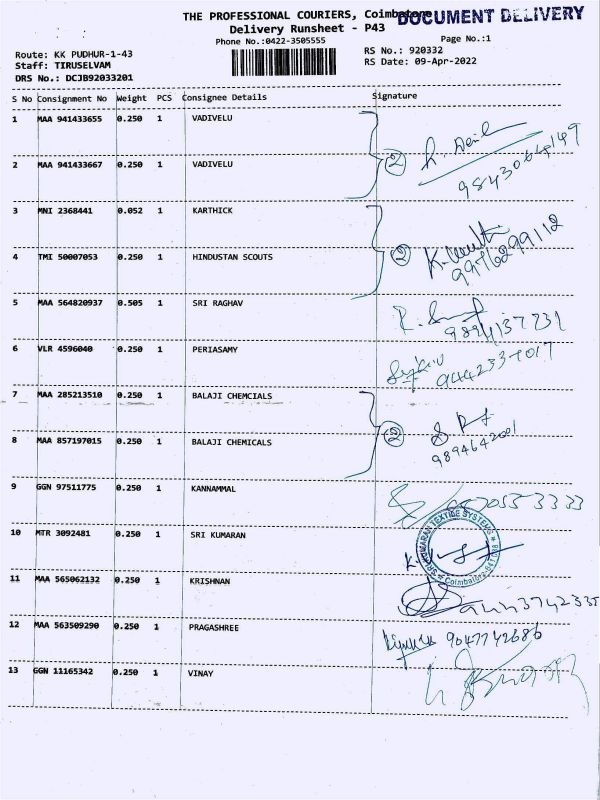 THE PROFESSIONAL COURIERS, Coimbatore
DOCUMENT DELIVERY
Delivery Runsheet - P43
Phone No.:0422-3505555
Page No.:1
Route: KK PUDHUR-1-43
RS No.: 920332
Staff: TIRUSELVAM
RS Date: 09-Apr-2022
DRS No.: DCJB92033201
S No Consignment No Weight PCS Consignee Details Signature
1 MAA 941433655 0.250 1 VADIVELU
2 MAA 941433667 0.250 1 VADIVELU
2
9843064149
3 MNI 2368441 0.052 1 KARTHICK
4 TMI 50007053 0.250 1 HINDUSTAN SCOUTS
2
9976299112
5 MAA 564820937 0.505 1 SRI RAGHAV
9894137731
6 VLR 4596040 0.250 1 PERIASAMY
7 MAA 285213510 0.250 1 BALAJI CHEMCIALS
8 MAA 857197015 0.250 1 BALAJI CHEMICALS
2
9894642001
9 GGN 97511775 0.250 1 KANNAMMAL
10 MTR 3092481 0.250 1 SRI KUMARAN
SRI KUMARAN TEXTILE SYSTEMS
Coimbatore-641 038
11 MAA 565062132 0.250 1 KRISHNAN
12 MAA 563509290 0.250 1 PRAGASHREE
9047742686
13 GGN 11165342 0.250 1 VINAY